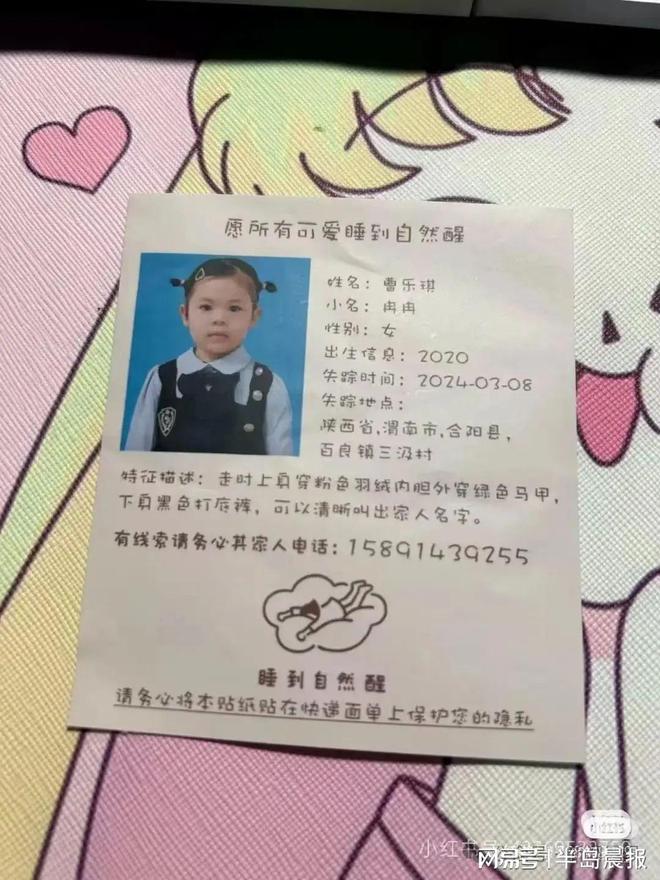 愿所有可爱睡到自然醒
姓名：曹乐琪
小名：冉冉
性别：女
出生信息：2020
失踪时间：2024-03-08
失踪地点：
陕西省,渭南市,合阳县,
百良镇三汲村
特征描述：走时上身穿粉色羽绒内胆外穿绿色马甲,
下身黑色打底裤，可以清晰叫出家人名字。
有线索请务必其家人电话：15891439255
睡到自然醒
请务必将本贴纸贴在快递面单上保护您的隐私
小红书
网易号 | 半岛晨报